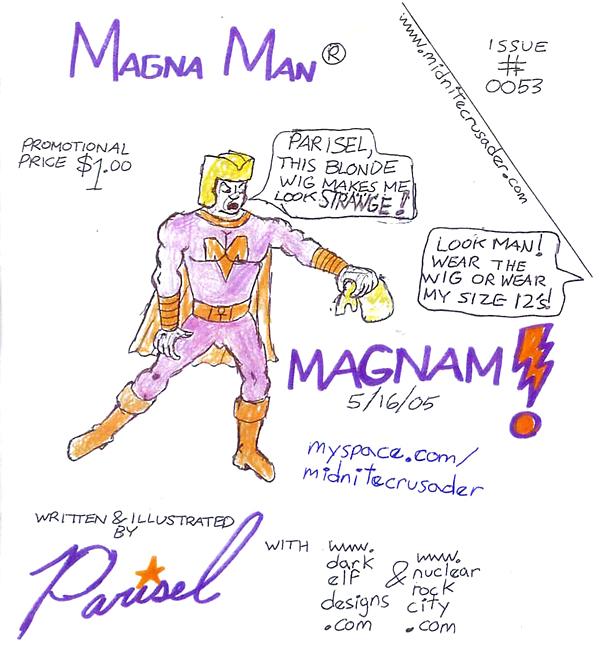 MAGNA MAN®
www.midnitecrusader.com
ISSUE
#
0053
PROMOTIONAL
PRICE $1.00
PARISEL,
THIS BLONDE
WIG MAKES ME
LOOK STRANGE!
LOOK MAN!
WEAR THE
WIG OR WEAR
MY SIZE 12's!
M
MAGNAM!
5/16/05
myspace.com/
midnitecrusader
WRITTEN & ILLUSTRATED
BY
Parisel
WITH
www.
dark
elf
designs
.com
&
www.
nuclear
rock
city
.com